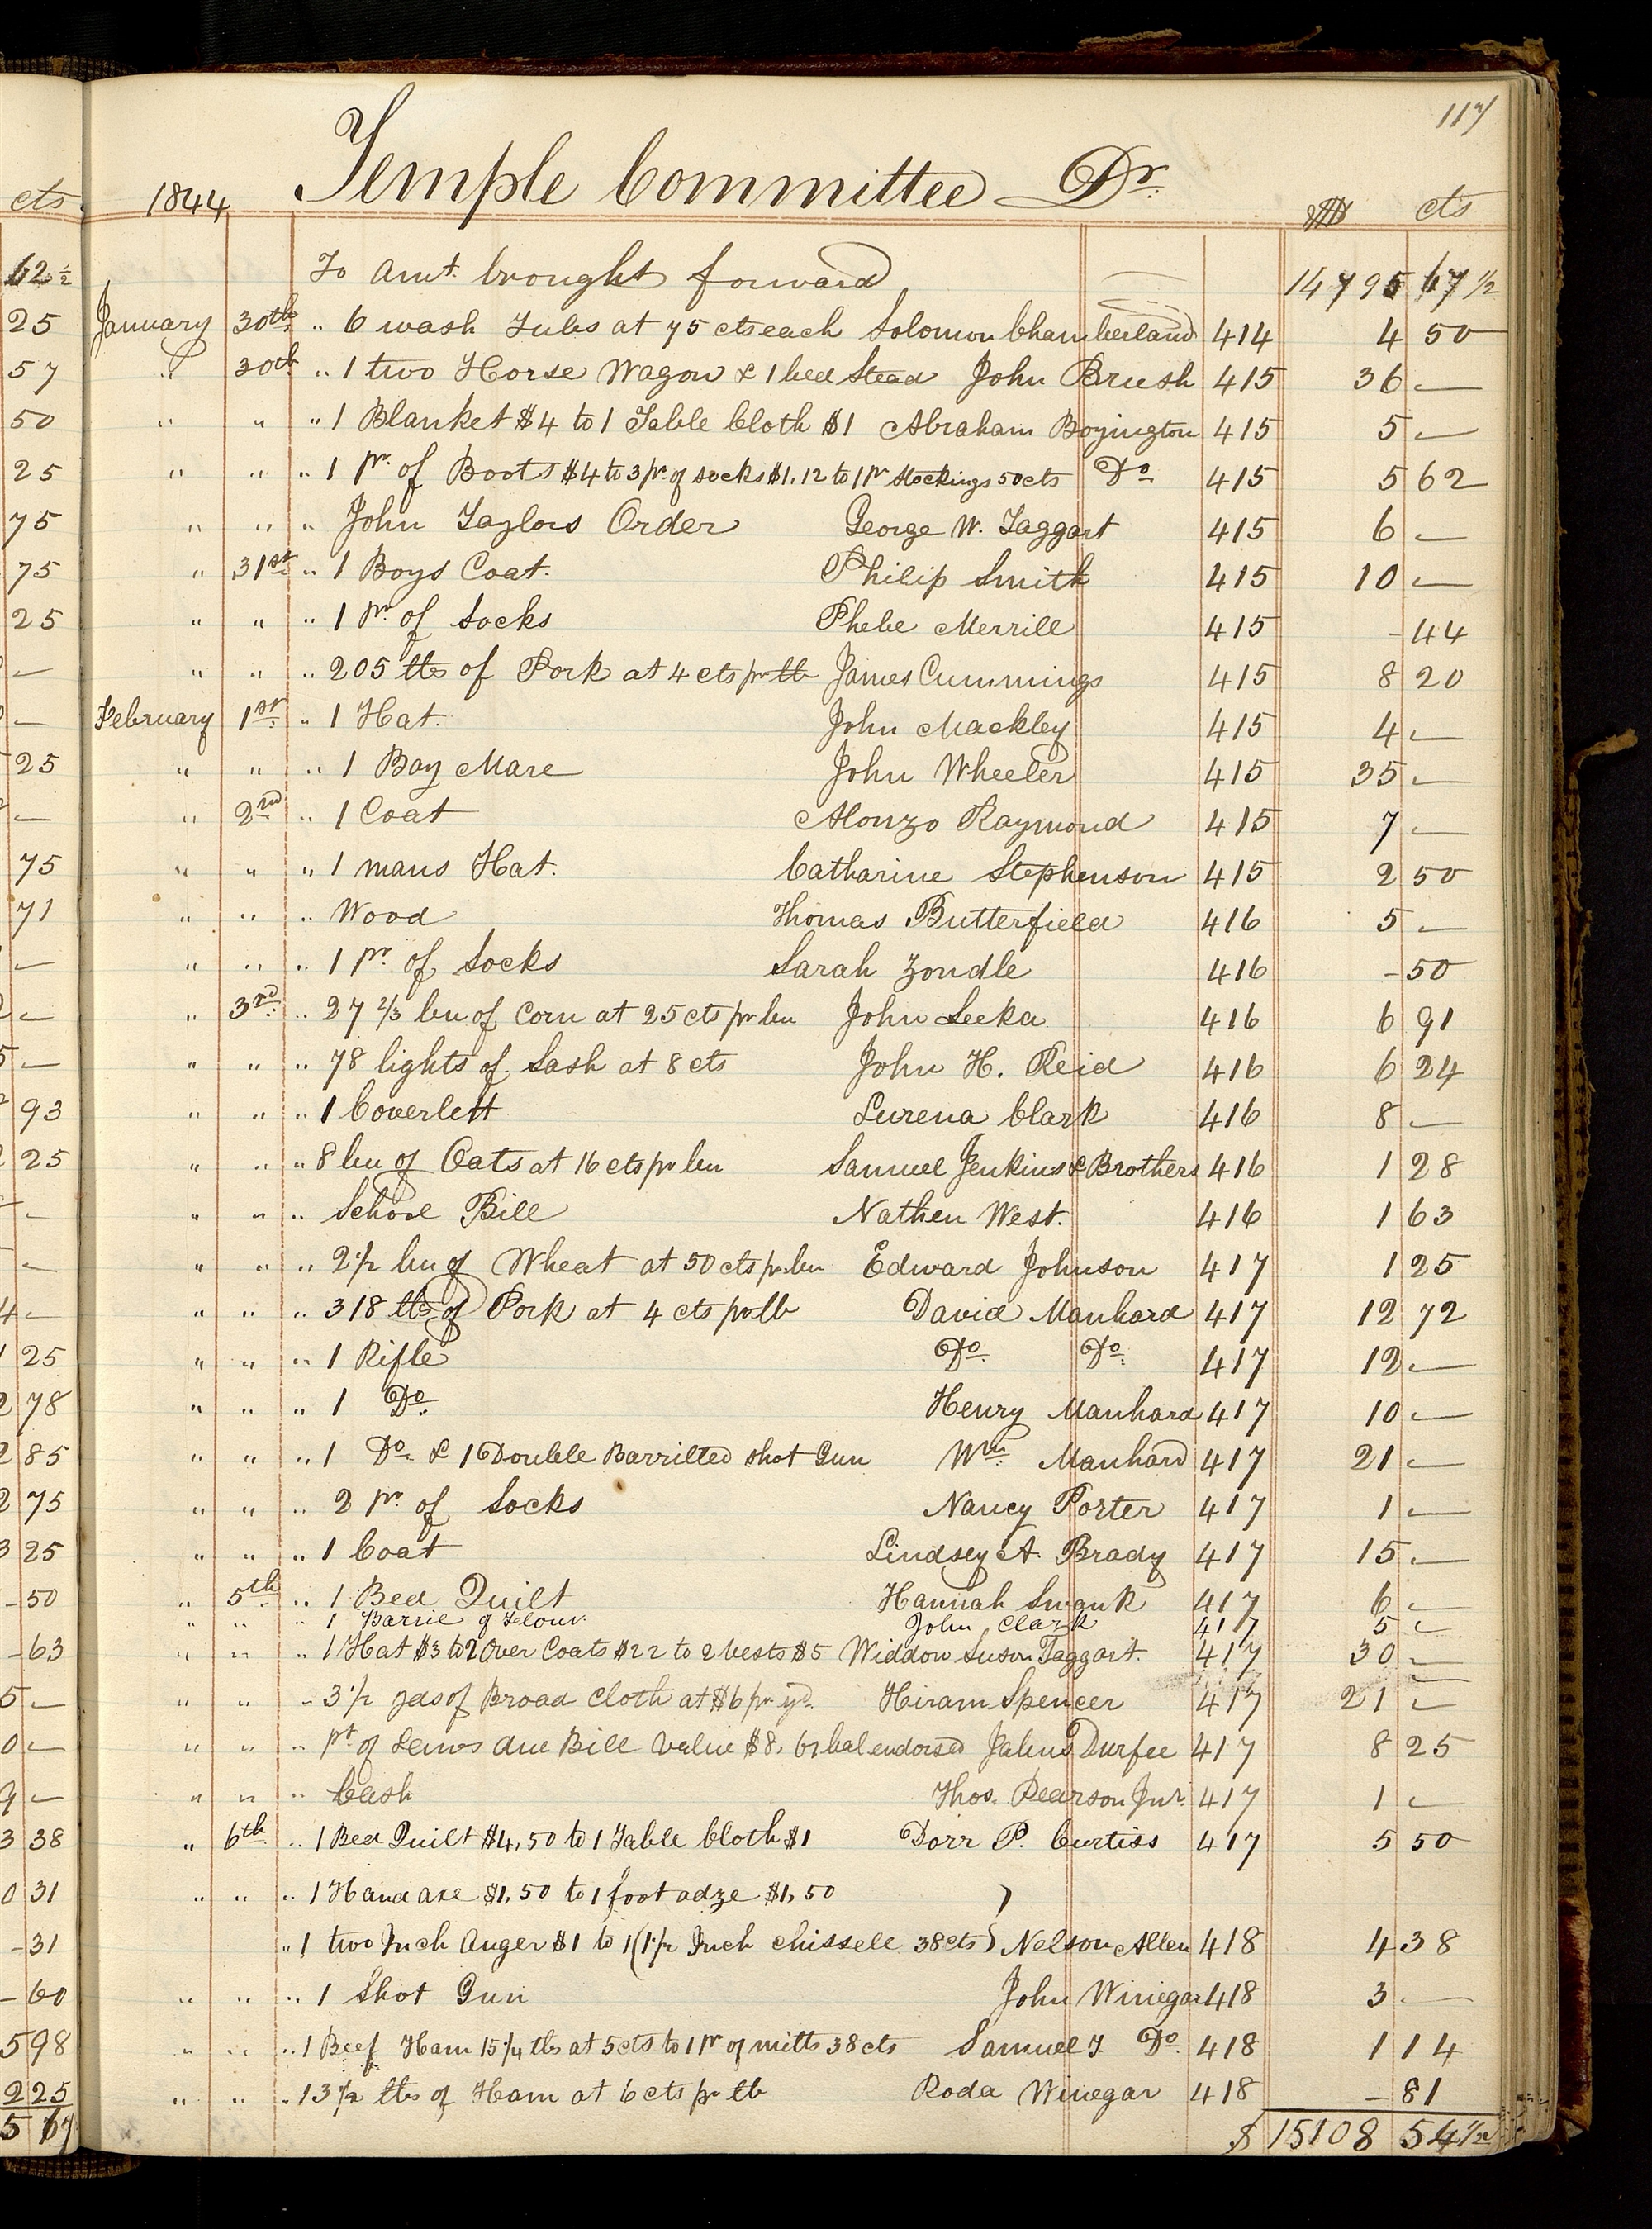 117
Temple Committee Dr.
1844 $ cts
To Amt. brought forward 14795 67 1/2
January 30th " 6 wash Tubs at 75 cts each Solomon Chamberland 414 4 50
" 30th " 1 two Horse Wagon & 1 bed Stead John Brush 415 36 —
" " " 1 Blanket $4 to 1 Table Cloth $1 Abraham Boyington 415 5 —
" " " 1 pr. of Boots $4 to 3 pr. of socks $1.12 to 1 pr Stockings 50 cts Do 415 5 62
" " " John Taylors Order George W. Taggart 415 6 —
" 31st " 1 Boys Coat. Philip Smith 415 10 —
" " " 1 Pr. of Socks Phebe Merrill 415 - 44
" " " 205 lbs of Pork at 4 cts pr lb James Cummings 415 8 20
February 1st " 1 Hat. John Mackley 415 4 —
" " " 1 Bay Mare John Wheeler 415 35 —
" 2nd " 1 Coat Alonzo Raymond 415 7 —
" " " 1 mans Hat. Catharine Stephenson 415 2 50
" " " Wood Thomas Butterfield 416 5 —
" " " 1 pr. of Socks Sarah Zondle 416 - 50
" 3rd " 27 2/3 bu of Corn at 25 cts pr bu John Leeka 416 6 91
" " " 78 lights of Sash at 8 cts John H. Reid 416 6 24
" " " 1 Coverlett Lurena Clark 416 8 —
" " " 8 bu of Oats at 16 cts pr bu Samuel Jenkins & Brothers 416 1 28
" " " School Bill Nathen West. 416 1 63
" " " 2 1/2 bu of Wheat at 50 cts pr bu Edward Johnson 417 1 25
" " " 318 lbs of Pork at 4 cts pr lb David Manhard 417 12 72
" " " 1 Rifle Do. Do. 417 12 —
" " " 1 Do. Henry Manhard 417 10 —
" " " 1 Do. & 1 Double Barrilled shot Gun Wm. Manhard 417 21 —
" " " 2 pr. of Socks Nancy Porter 417 1 —
" " " 1 Coat Lindsey A. Brady 417 15 —
" 5th " 1 Bed Quilt Hannah 417 6 —
" " " 1 Barrel of Flour. John Clark 417 5 —
" " " 1 Hat $3 to 2 Over Coats $22 to 2 vests $5 Widdow Suson Taggart. 417 30 —
" " " 3 1/2 yds of Broad Cloth at $6 pr yd. Hiram Spencer 417 21 —
" " " pt of due Bill value $8, bal endorsed Jabus Durfee 417 8 25
" " " Cash Thos. Pearson Junr. 417 1 —
" 6th " 1 Bed Quilt $4,50 to 1 Table Cloth $1 Dorr P. Curtiss 417 5 50
" " " 1 Hand axe $1,50 to 1 foot adze $1,50 )
" 1 two Inch Auger $1 to 1 (1 1/2 Inch chissell 38 cts) Nelson Allen 418 4 38
" " " 1 Shot Gun John Winegar 418 3 —
" " " 1 Beef Ham 15 1/4 lbs at 5 cts to 1 pr of mitts 38 cts Samuel T. Do. 418 1 14
" " " 13 1/2 lbs of Ham at 6 cts pr lb Roda Winegar 418 - 81
$ 15108 54 1/2
cts
62 1/2
25
57
50
25
75
75
25
—
—
25
—
75
71
—
—
—
93
25
—
—
—
25
78
85
75
25
50
63
—
—
—
38
31
31
60
98
25
67